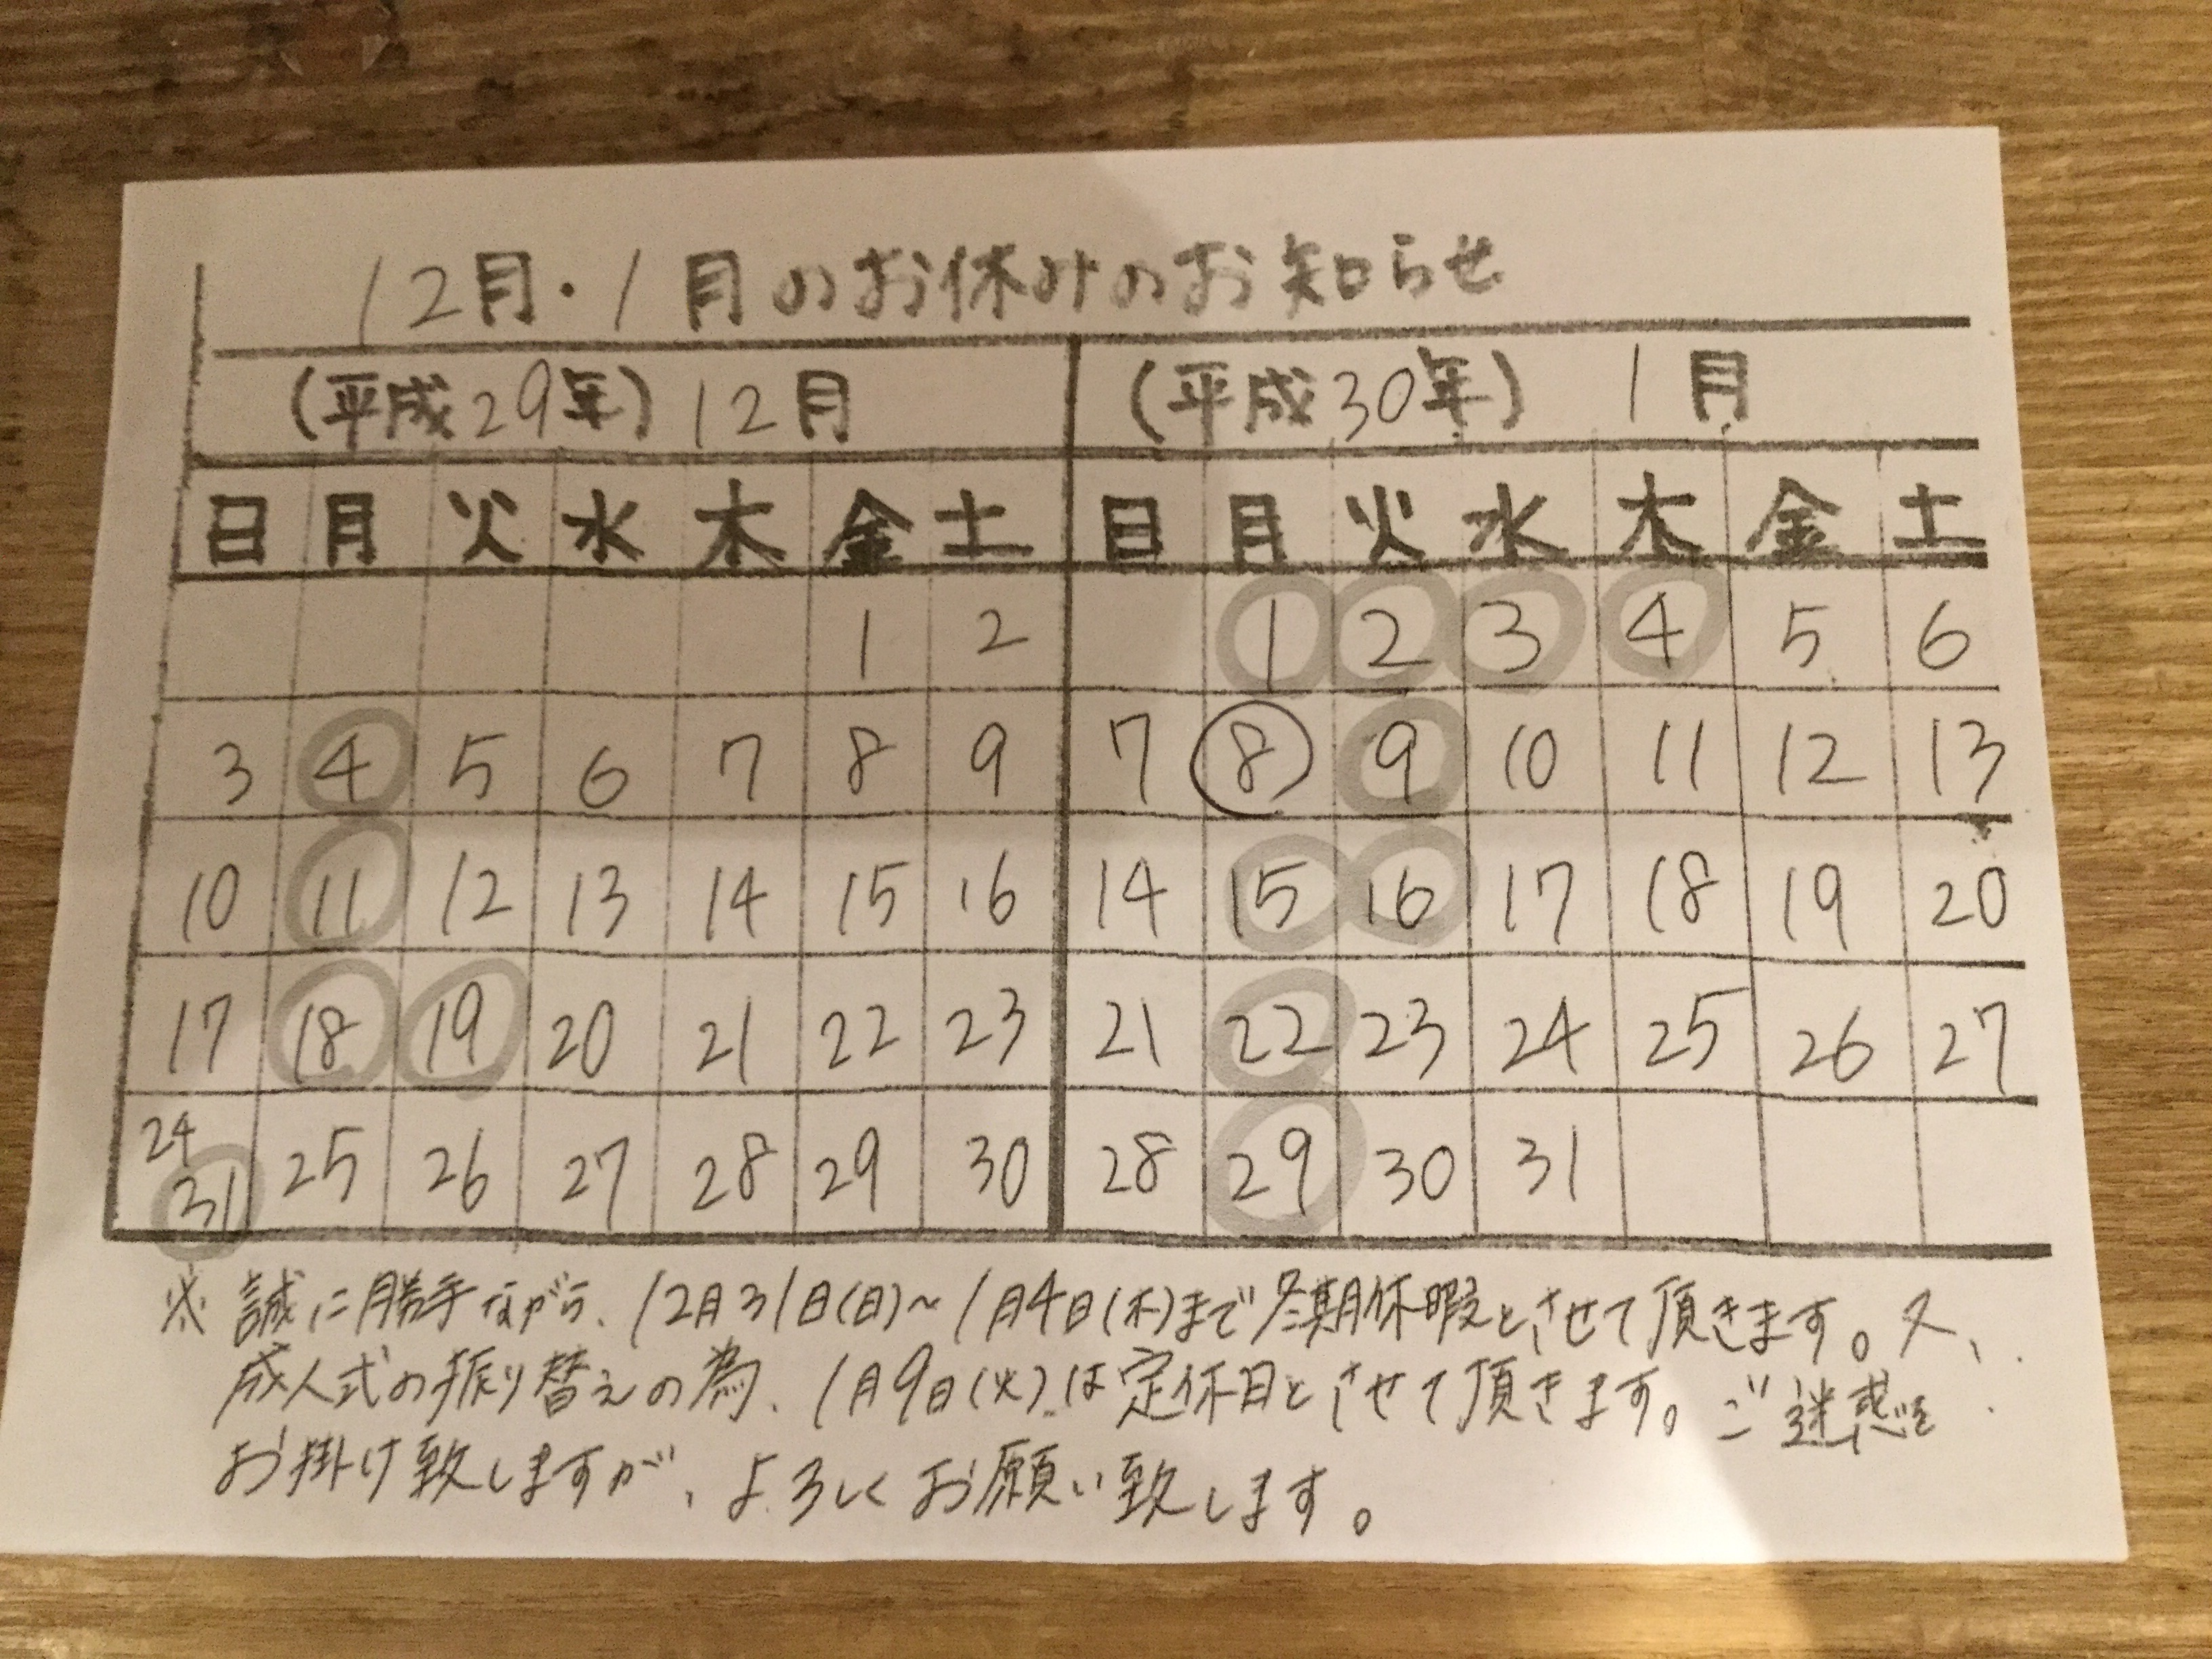 12月・1月のお休みのお知らせ
(平成29年) 12月 (平成30年) 1月
日 月 火 水 木 金 土 日 月 火 水 木 金 土
1 2 1 2 3 4 5 6
3 4 5 6 7 8 9 7 8 9 10 11 12 13
10 11 12 13 14 15 16 14 15 16 17 18 19 20
17 18 19 20 21 22 23 21 22 23 24 25 26 27
24 31 25 26 27 28 29 30 28 29 30 31
※ 誠に勝手ながら、12月31日(日)～1月4日(木)まで冬期休暇とさせて頂きます。又、
成人式の振り替えの為、1月9日(火)は定休日とさせて頂きます。ご迷惑を
お掛け致しますが、よろしくお願い致します。